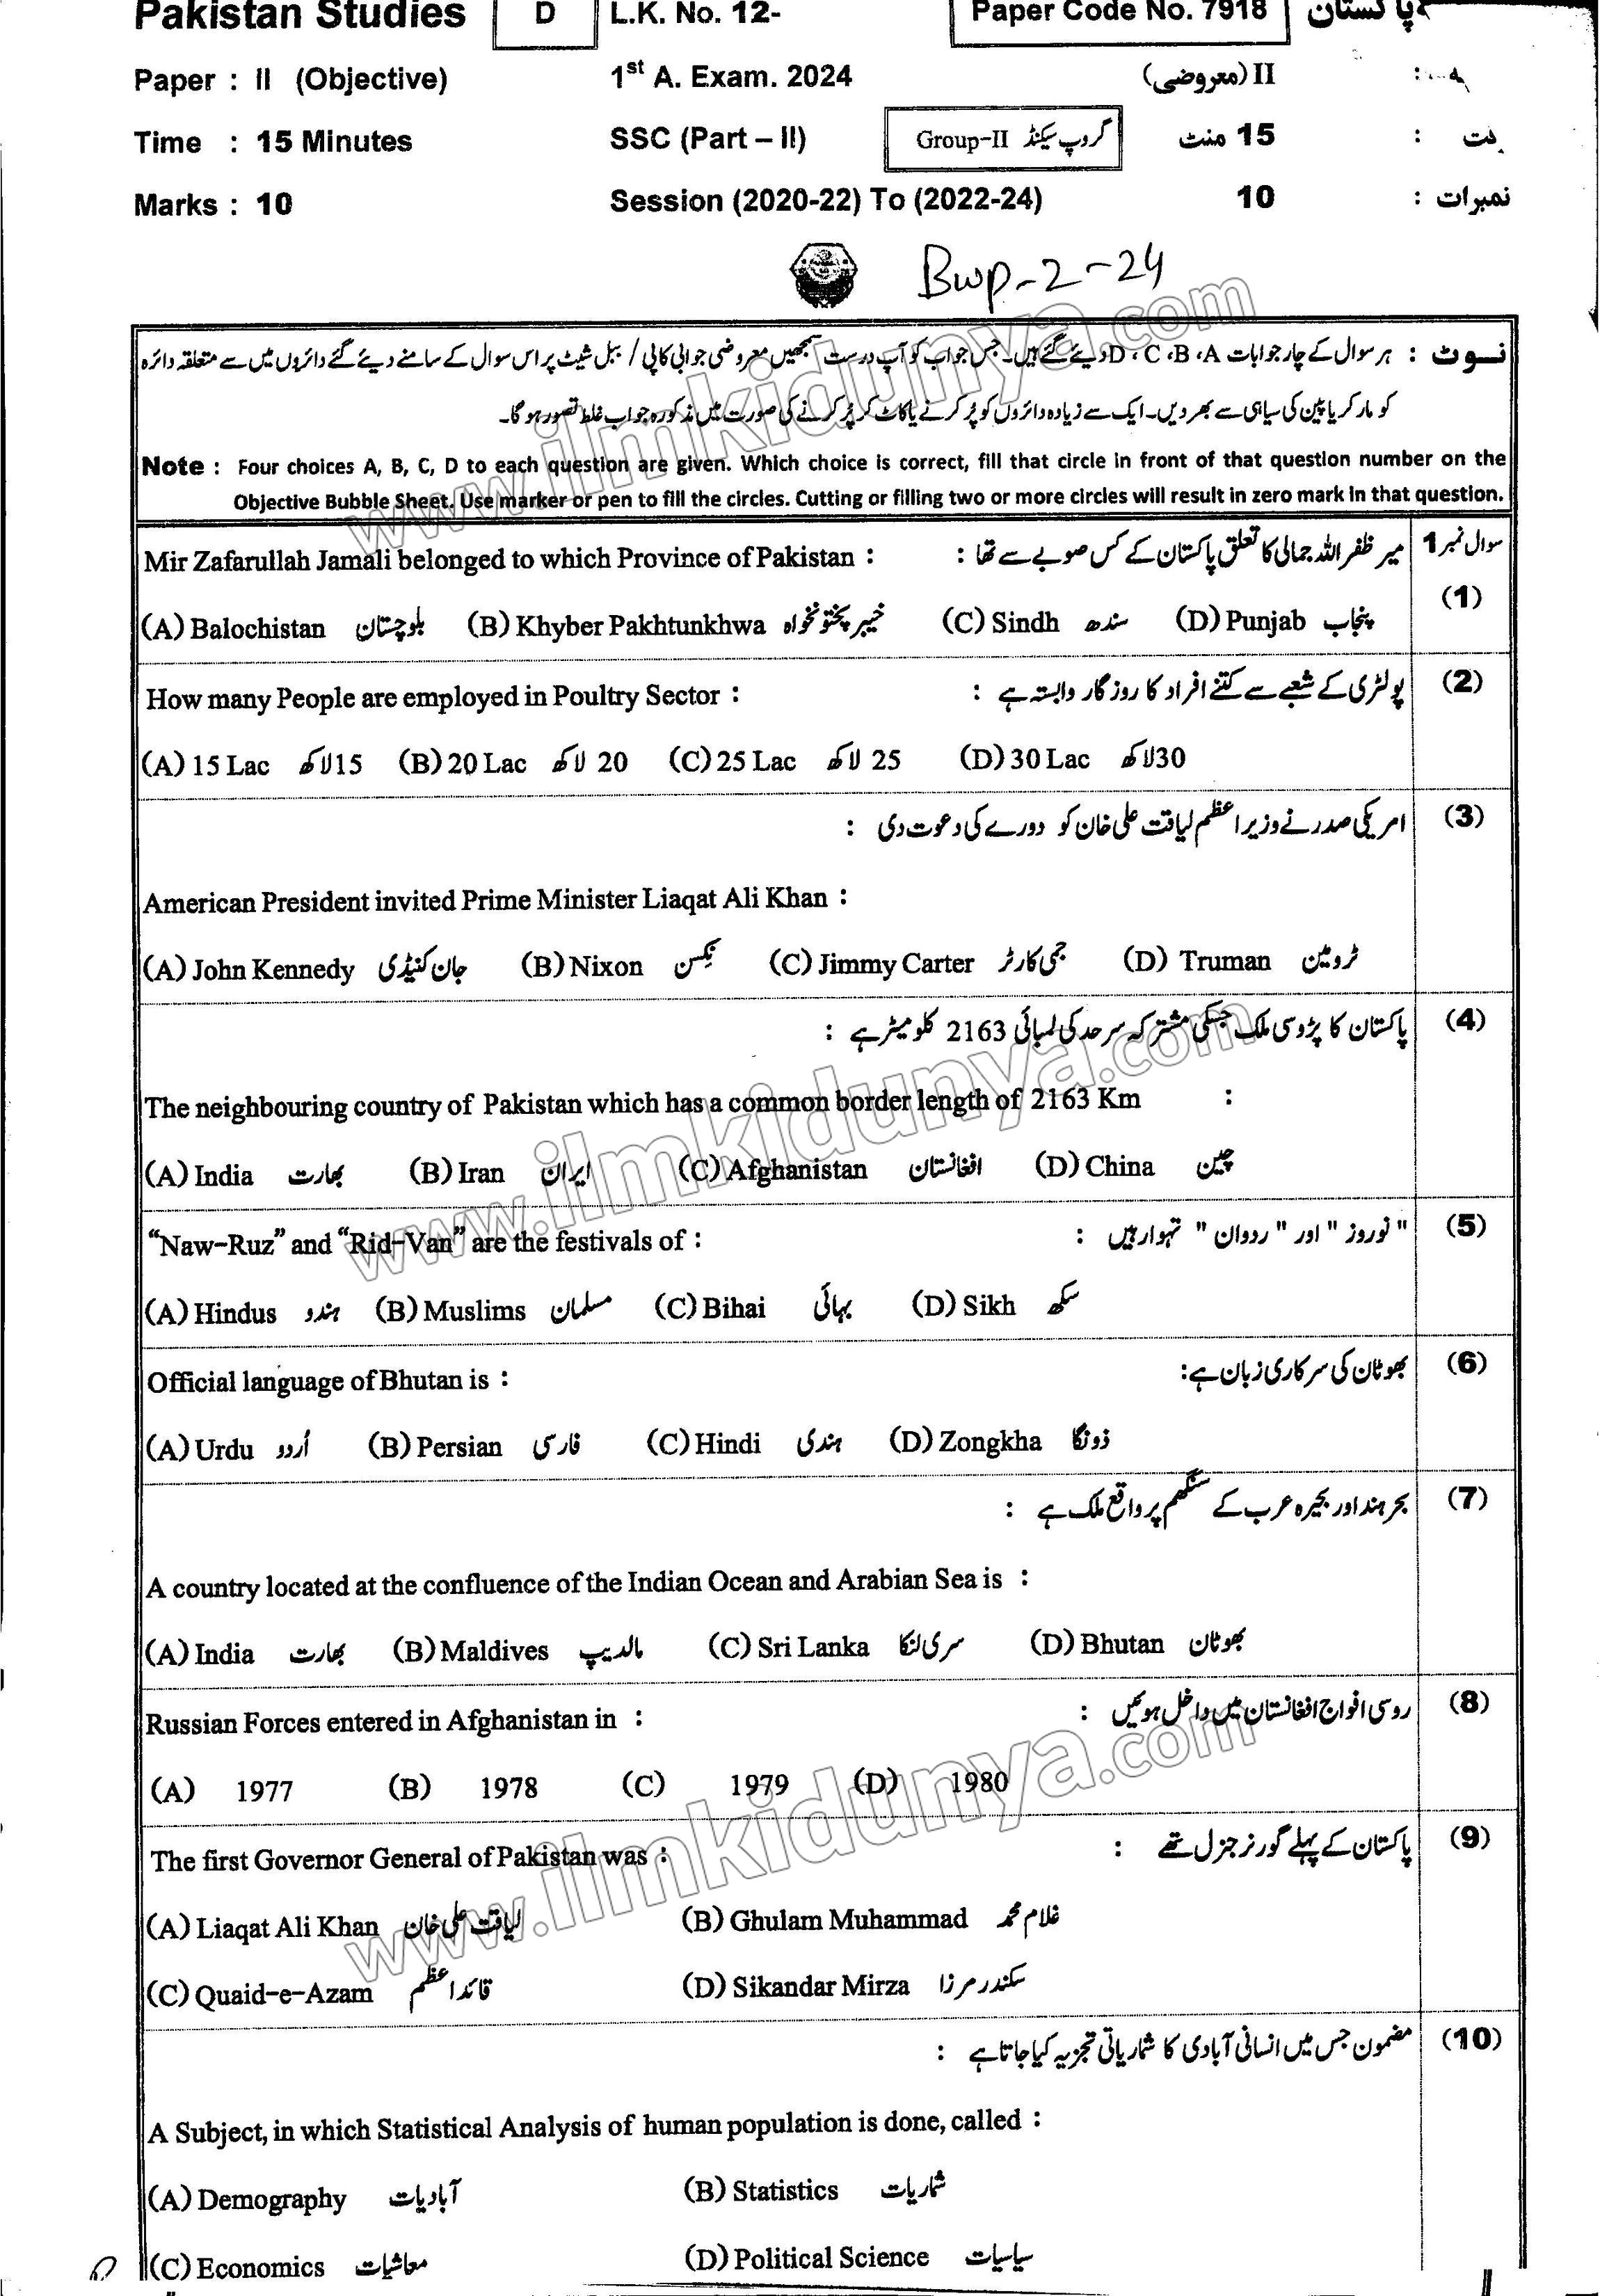 Pakistan Studies D L.K. No. 12- Paper Code No. 7918 پاکستان
Paper : II (Objective) 1st A. Exam. 2024 II (معروضی) :
Time : 15 Minutes SSC (Part – II) Group-II گروپ سیکنڈ 15 منٹ :
Marks : 10 Session (2020-22) To (2022-24) 10 نمبرات :
Bwp-2-24
نوٹ : ہر سوال کے چار جوابات A، B، C، D دیئے گئے ہیں۔ جس جواب کو آپ درست سمجھیں معروضی جوابی کاپی / ببل شیٹ پر اس سوال کے سامنے دیئے گئے دائروں میں سے متعلقہ دائرہ
کو مارکر یا پین کی سیاہی سے بھر دیں۔ ایک سے زیادہ دائروں کو پُر کرنے یا کاٹ کر پُر کرنے کی صورت میں مذکورہ جواب غلط تصور ہو گا۔
Note : Four choices A, B, C, D to each question are given. Which choice is correct, fill that circle in front of that question number on the
Objective Bubble Sheet. Use marker or pen to fill the circles. Cutting or filling two or more circles will result in zero mark in that question.
Mir Zafarullah Jamali belonged to which Province of Pakistan : میر ظفر اللہ جمالی کا تعلق پاکستان کے کس صوبے سے تھا : سوال نمبر 1
(1)
(A) Balochistan بلوچستان (B) Khyber Pakhtunkhwa خیبر پختونخواہ (C) Sindh سندھ (D) Punjab پنجاب
How many People are employed in Poultry Sector : پولٹری کے شعبے سے کتنے افراد کا روزگار وابستہ ہے : (2)
(A) 15 Lac 15لاکھ (B) 20 Lac 20 لاکھ (C) 25 Lac 25 لاکھ (D) 30 Lac 30لاکھ
امریکی صدر نے وزیراعظم لیاقت علی خان کو دورے کی دعوت دی : (3)
American President invited Prime Minister Liaqat Ali Khan :
(A) John Kennedy جان کنیڈی (B) Nixon نکسن (C) Jimmy Carter جمی کارٹر (D) Truman ٹرومین
پاکستان کا پڑوسی ملک جسکی مشترکہ سرحد کی لمبائی 2163 کلومیٹر ہے : (4)
The neighbouring country of Pakistan which has a common border length of 2163 Km :
(A) India بھارت (B) Iran ایران (C) Afghanistan افغانستان (D) China چین
“Naw-Ruz” and “Rid-Van” are the festivals of : " نوروز " اور " ردوان " تہوار ہیں : (5)
(A) Hindus ہندو (B) Muslims مسلمان (C) Bihai بہائی (D) Sikh سکھ
Official language of Bhutan is : بھوٹان کی سرکاری زبان ہے: (6)
(A) Urdu اُردو (B) Persian فارسی (C) Hindi ہندی (D) Zongkha ذونگا
بحر ہند اور بحیرہ عرب کے سنگھم پر واقع ملک ہے : (7)
A country located at the confluence of the Indian Ocean and Arabian Sea is :
(A) India بھارت (B) Maldives مالدیپ (C) Sri Lanka سری لنکا (D) Bhutan بھوٹان
Russian Forces entered in Afghanistan in : روسی افواج افغانستان میں داخل ہوئیں : (8)
(A) 1977 (B) 1978 (C) 1979 (D) 1980
The first Governor General of Pakistan was : پاکستان کے پہلے گورنر جنرل تھے : (9)
(A) Liaqat Ali Khan لیاقت علی خان (B) Ghulam Muhammad غلام محمد
(C) Quaid-e-Azam قائد اعظم (D) Sikandar Mirza سکندر مرزا
مضمون جس میں انسانی آبادی کا شماریاتی تجزیہ کیا جاتا ہے : (10)
A Subject, in which Statistical Analysis of human population is done, called :
(A) Demography آبادیات (B) Statistics شماریات
(C) Economics معاشیات (D) Political Science سیاسیات
www.ilmkidunya.com
www.ilmkidunya.com
www.ilmkidunya.com